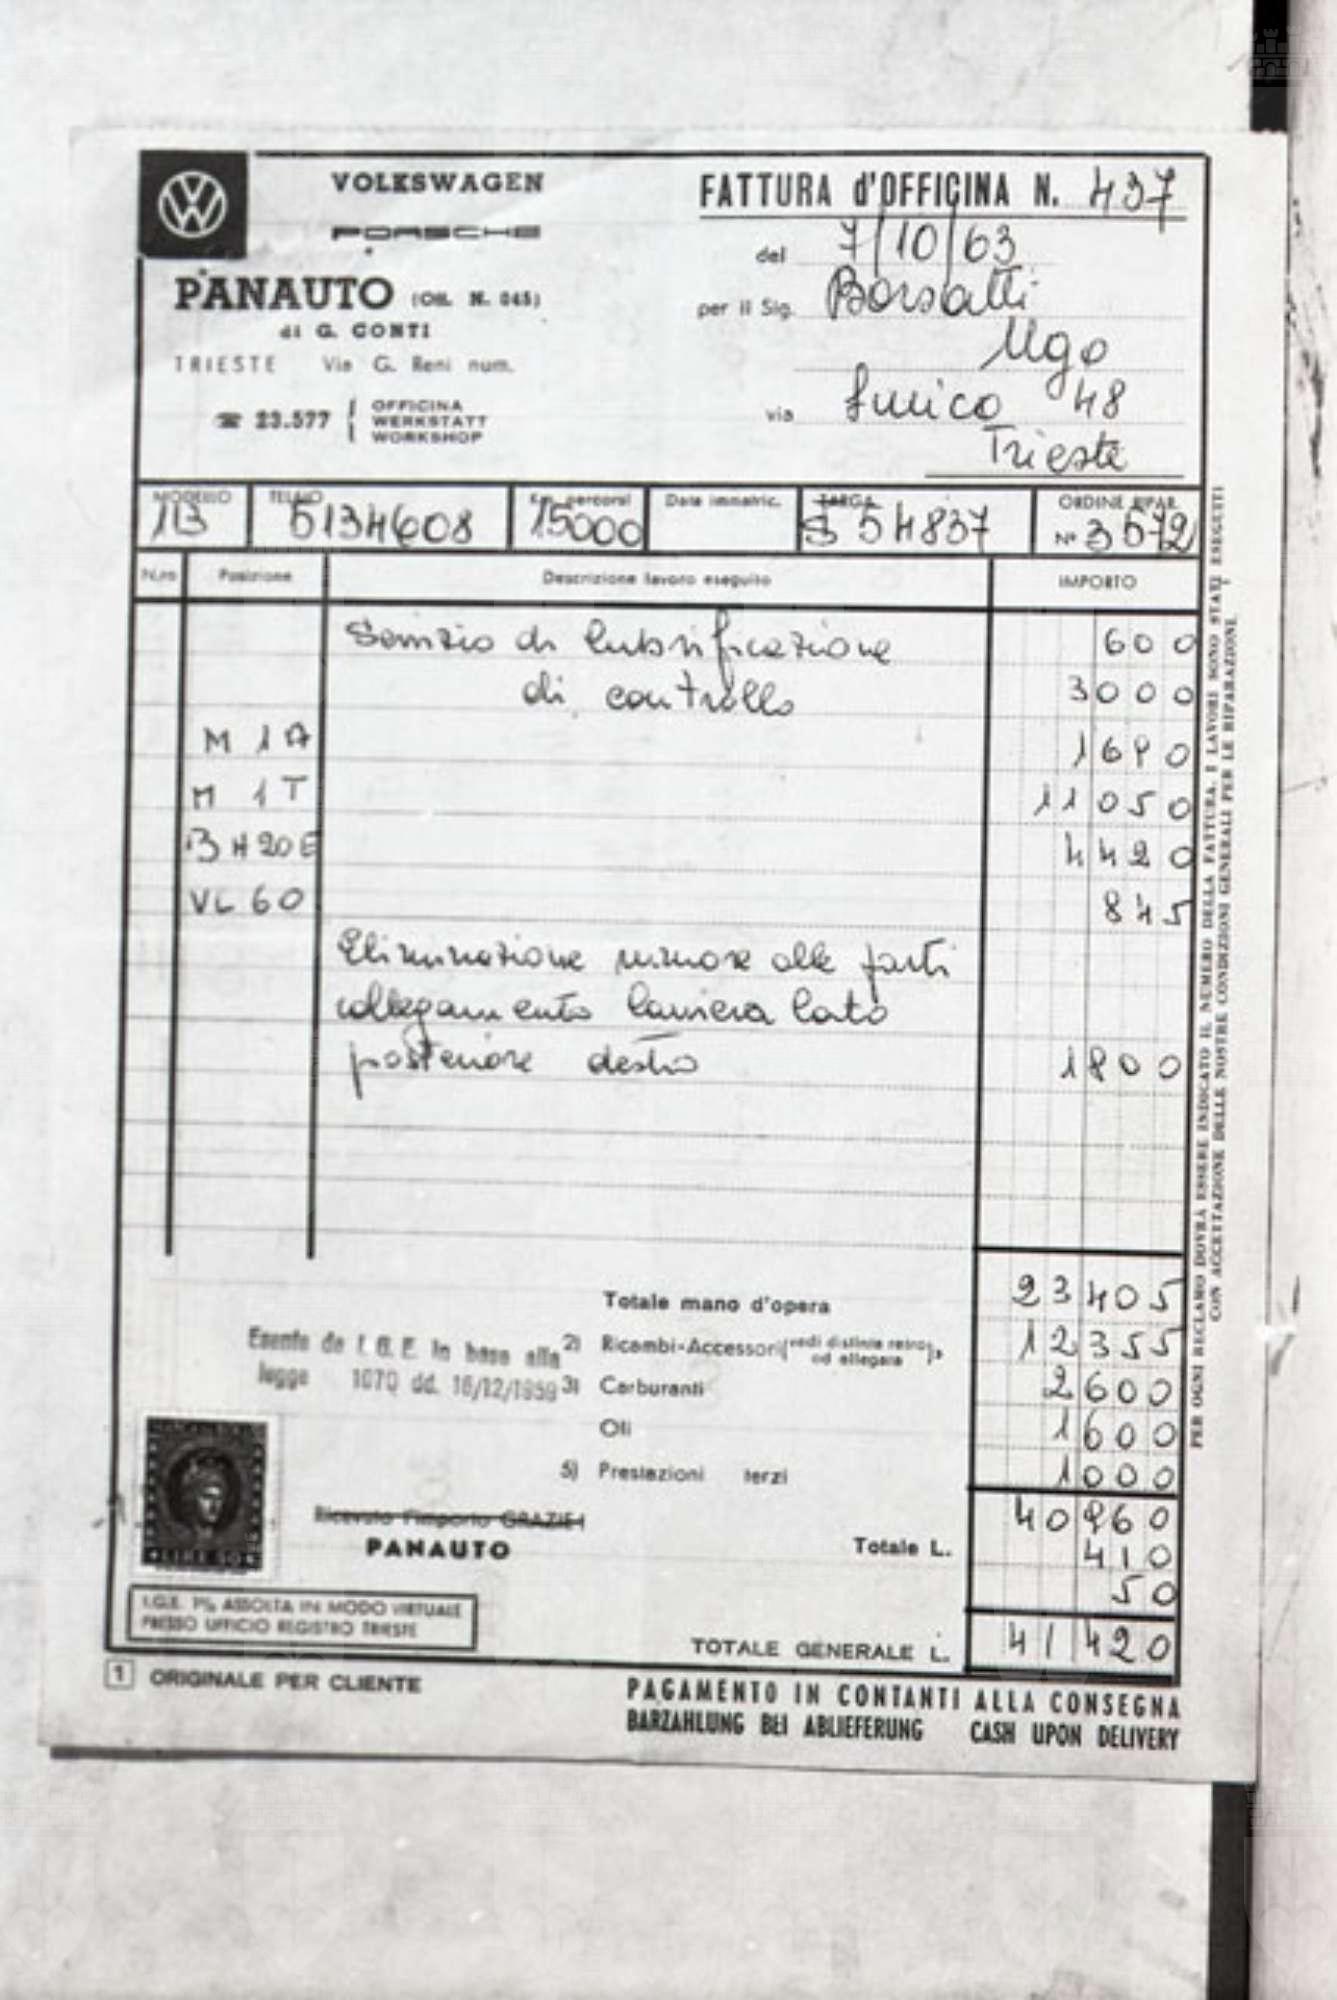 VOLKSWAGEN
PORSCHE
PANAUTO (Off. N. 045)
di G. CONTI
TRIESTE Via G. Reni num.
☎ 23.577
OFFICINA
WERKSTATT
WORKSHOP
FATTURA d'OFFICINA N. 437
del 7/10/63
per il Sig. Borsatti
Ugo
via 48
Trieste
MODELLO TELAIO Km. percorsi Data immatric. TARGA ORDINE RIPAR.
113 5134608 15000 54837 N° 3572
N.ro Posizione Descrizione lavoro eseguito IMPORTO
Servizio di lubrificazione 600
di controllo 3000
M 1 A 1690
M 1 T 11050
B H 20 E 4420
VL 60 845
Eliminazione rumore alle parti
collegamento lamiera lato
posteriore destro 1800
Totale mano d'opera 23405
2) Ricambi-Accessori (vedi distinta retro od allegata), 12355
3) Carburanti 2600
Oli 1600
5) Prestazioni terzi 1000
Esente da I.G.E. in base alla
legge 1070 dd. 16/12/1959
Ricevuto l'importo GRAZIE!
PANAUTO
LIRE 50
Totale L. 40960
410
50
I.G.E. 1% ASSOLTA IN MODO VIRTUALE
PRESSO UFFICIO REGISTRO TRIESTE
TOTALE GENERALE L. 41420
1 ORIGINALE PER CLIENTE
PAGAMENTO IN CONTANTI ALLA CONSEGNA
BARZAHLUNG BEI ABLIEFERUNG CASH UPON DELIVERY
PER OGNI RECLAMO DOVRÀ ESSERE INDICATO IL NUMERO DELLA FATTURA. I LAVORI SONO STATI ESEGUITI
CON ACCETTAZIONE DELLE NOSTRE CONDIZIONI GENERALI PER LE RIPARAZIONI.